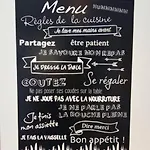 Menu
Règles de la cuisine
Je lave mes mains avant
Partagez être patient
JE SAVOURE MON REPAS
JE DRESSE LA TABLE
GOUTEZ Se régaler
Ne pas poser ses coudes sur la table
JE NE JOUE PAS AVEC LA NOURRITURE
JE NE PARLE PAS
LA BOUCHE PLEINE
Je finis
mon assiette Dire merci
JE FAIS LA VAISSELLE Bon appétit !